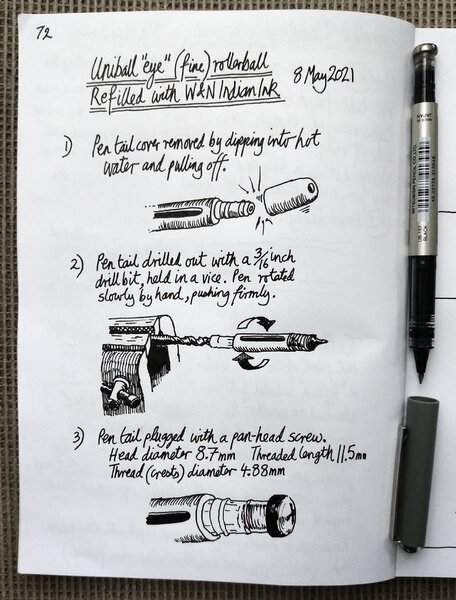 72
Uniball "eye" (fine) rollerball
Refilled with W&N Indian Ink
8 May 2021
1) Pen tail cover removed by dipping into hot
water and pulling off.
2) Pen tail drilled out with a 3/16 inch
drill bit, held in a vice. Pen rotated
slowly by hand, pushing firmly.
3) Pen tail plugged with a pan-head screw.
Head diameter 8.7mm Threaded length 11.5mm
Thread (crests) diameter 4.88mm
MITSUBISHI PENCIL CO. LTD.
UB-157
BLACK